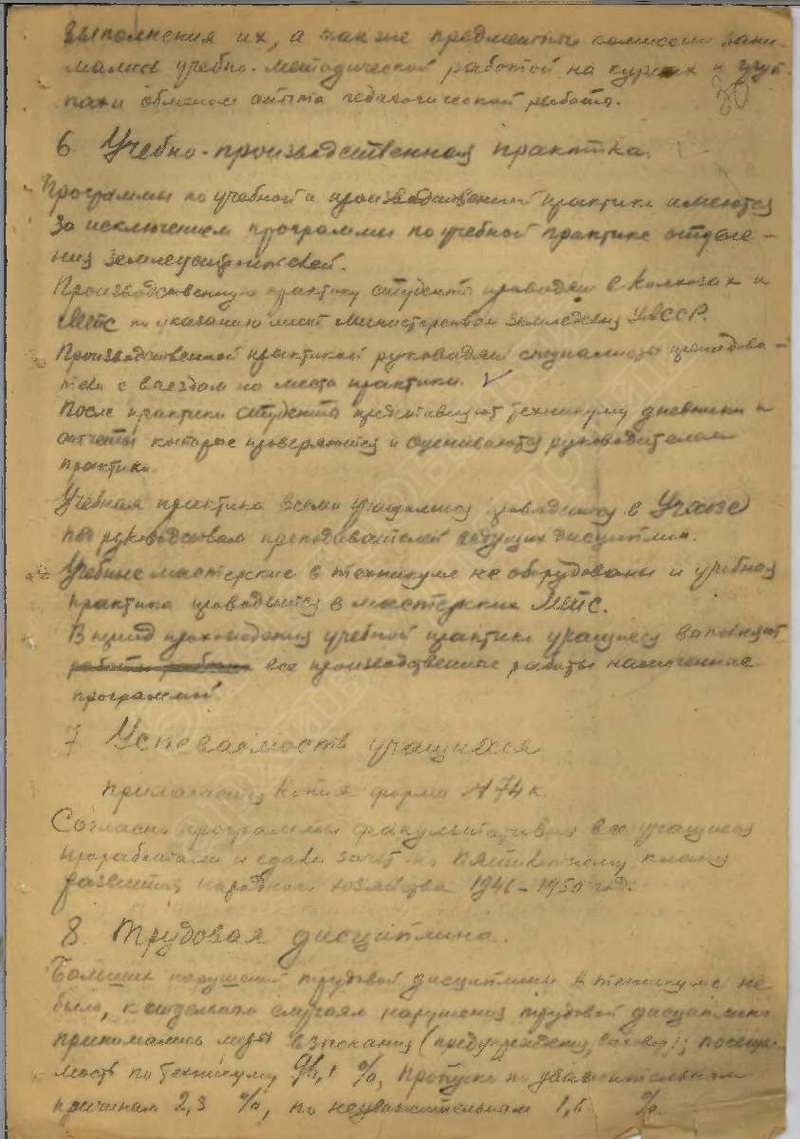 выполнения их, а так же предметные комиссии зани-
мались учебно-методической работой на курсах и груп-
пах и обменом опыта педагогической работы.
30
6 Учебно-производственная практика.
Программы по учебной и производственной практики имеются
за исключением программы по учебной практике отделе-
ния землеустроителей.
Производственную практику студенты проводят в колхозах и
МТС по указанию мест Министерством земледелия
Производственной практикой руководят специалисты преподава-
тели с выездом на места практики.
После практики студенты представляют техникуму дневники и
отчеты которые проверяются и оцениваются руководителем
практики.
Учебная практика всеми учащимися проводится в Учхозе
под руководством преподавателей ведущих дисциплин.
Учебные мастерские в техникуме не оборудованы и учебная
практика проводится в мастерских МТС.
В период прохождения учебной практики учащиеся выполняют
все производственные работы намеченные
программой
7 Успеваемость учащихся
Прилагается копия форма №74 к.
Согласно программы факультативно все учащиеся
проработали и сдали зачет по пятилетнему плану
развития народного хозяйства 1946-1950 год.
8. Трудовая дисциплина.
Больших нарушений трудовой дисциплины в техникуме не
было, к отдельным случаям нарушения трудовой дисциплины
принимались меры взыскания (предупреждения, выговор); посещае-
мость по техникуму %, пропуски по уважительным
причинам 2,3 %, по неуважительным 1,6 %.